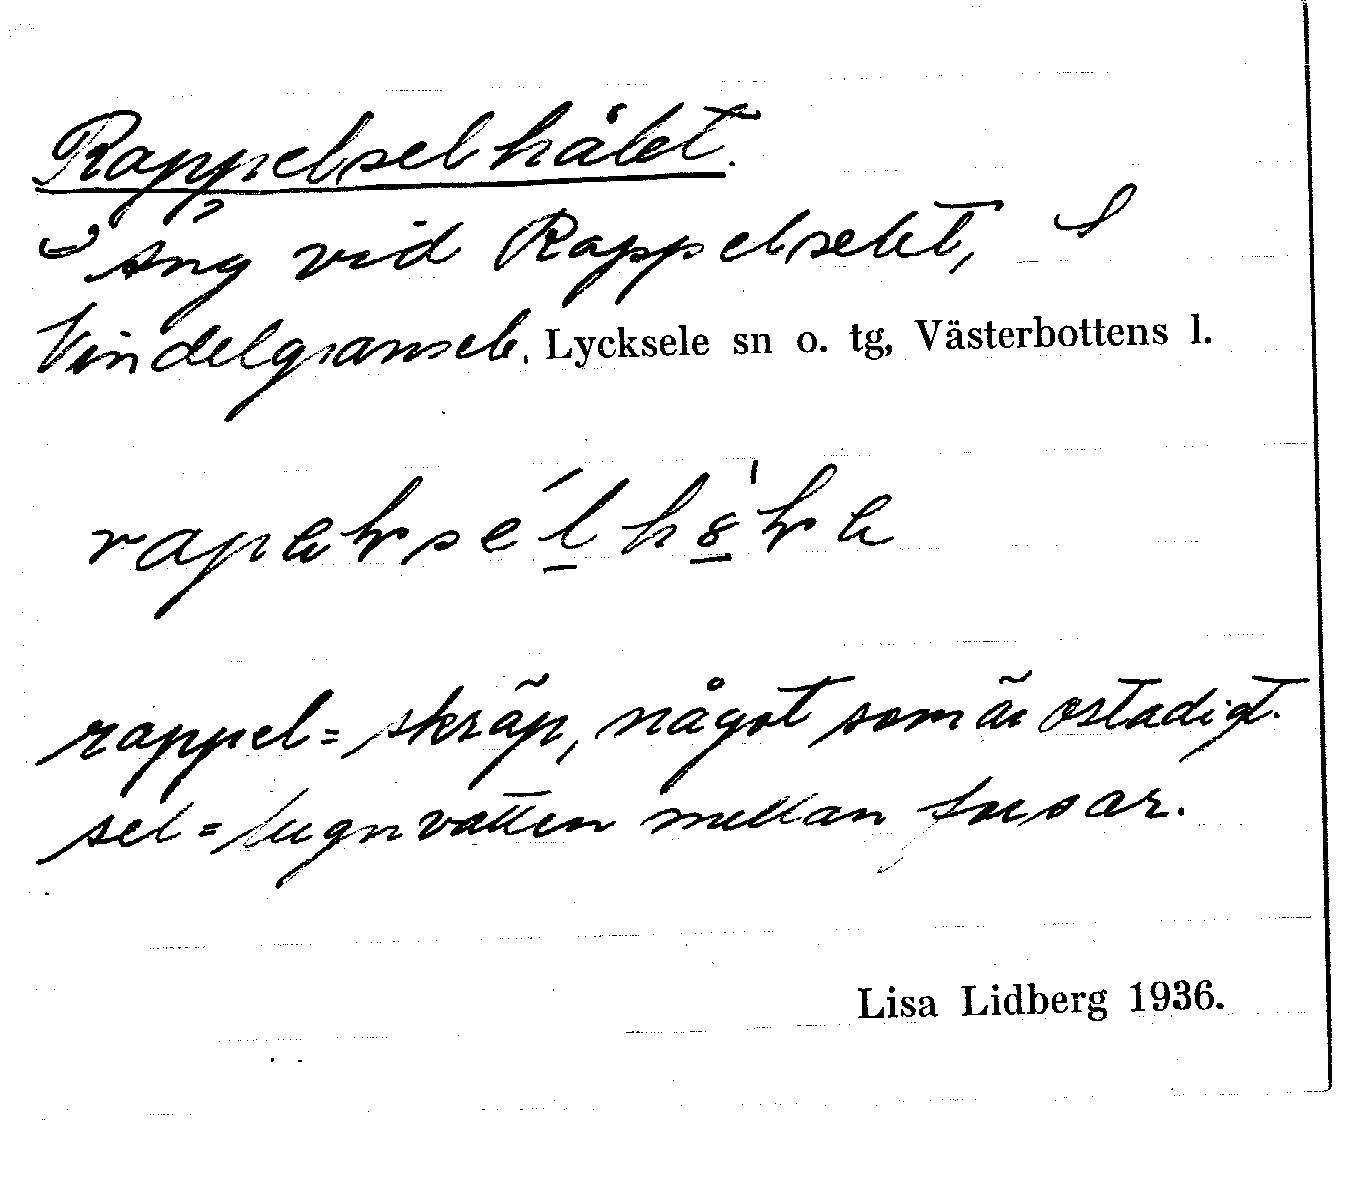 Rappelselhålet.
Äng vid Rappelselet,
Vindelgransele. Lycksele sn o. tg, Västerbottens l.
rappel = skräp, något som är ostadigt.
sel = lugnvatten mellan forsar.
Lisa Lidberg 1936.